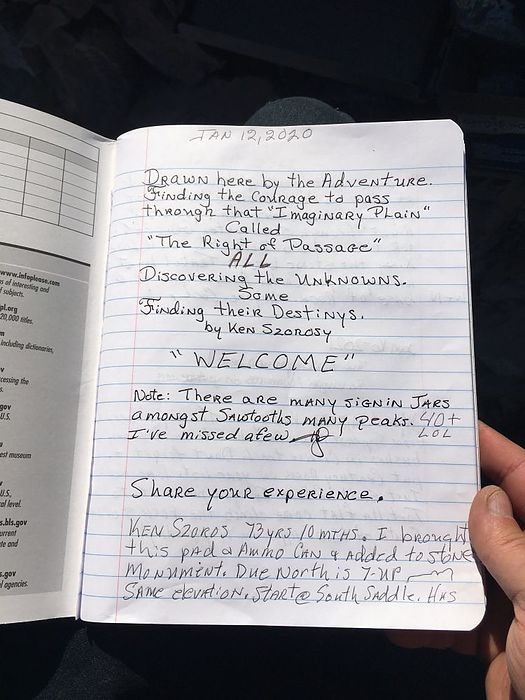 JAN 12, 2020
DRAWN here by the Adventure.
Finding the Courage to pass
through that "Imaginary Plain"
Called
"The Right of Passage"
ALL
Discovering the Unknowns.
Some
Finding their Destinys.
by Ken Szorosy
"WELCOME"
Note: There are many signin Jars
amongst Sawtooths many peaks. 40+
I've missed a few LOL
Share your experience.
Ken Szoros 73yrs 10 mths. I brought
this pad & Ammo Can & Added to stone
Monument. Due North is 7-UP
Same elevation. Start @ South Saddle. Has
www.infoplease.com
s of interesting and
f subjects.
pl.org
20,000 titles.
m
including dictionaries,
v
ccessing the
s.
gov
U.S.
a
est museum
v
U.S.
al level.
s.bls.gov
urrent
te and
s.gov
l agencies.